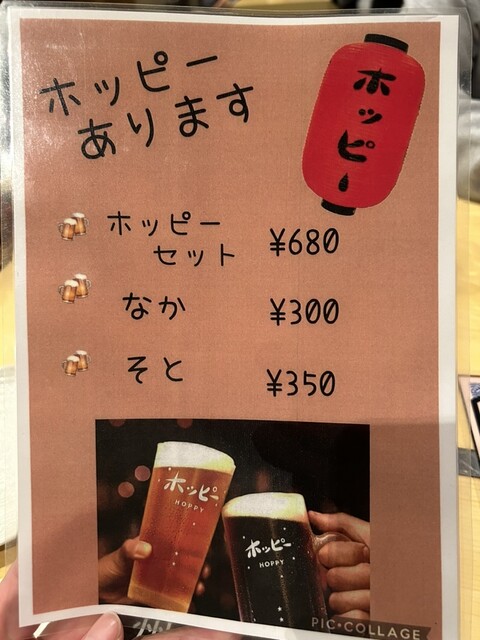 ホッピー
あります
ホッピー
ホッピー
セット ¥680
なか ¥300
そと ¥350
ホッピー
HOPPY
ホッピー
HOPPY
PIC•COLLAGE